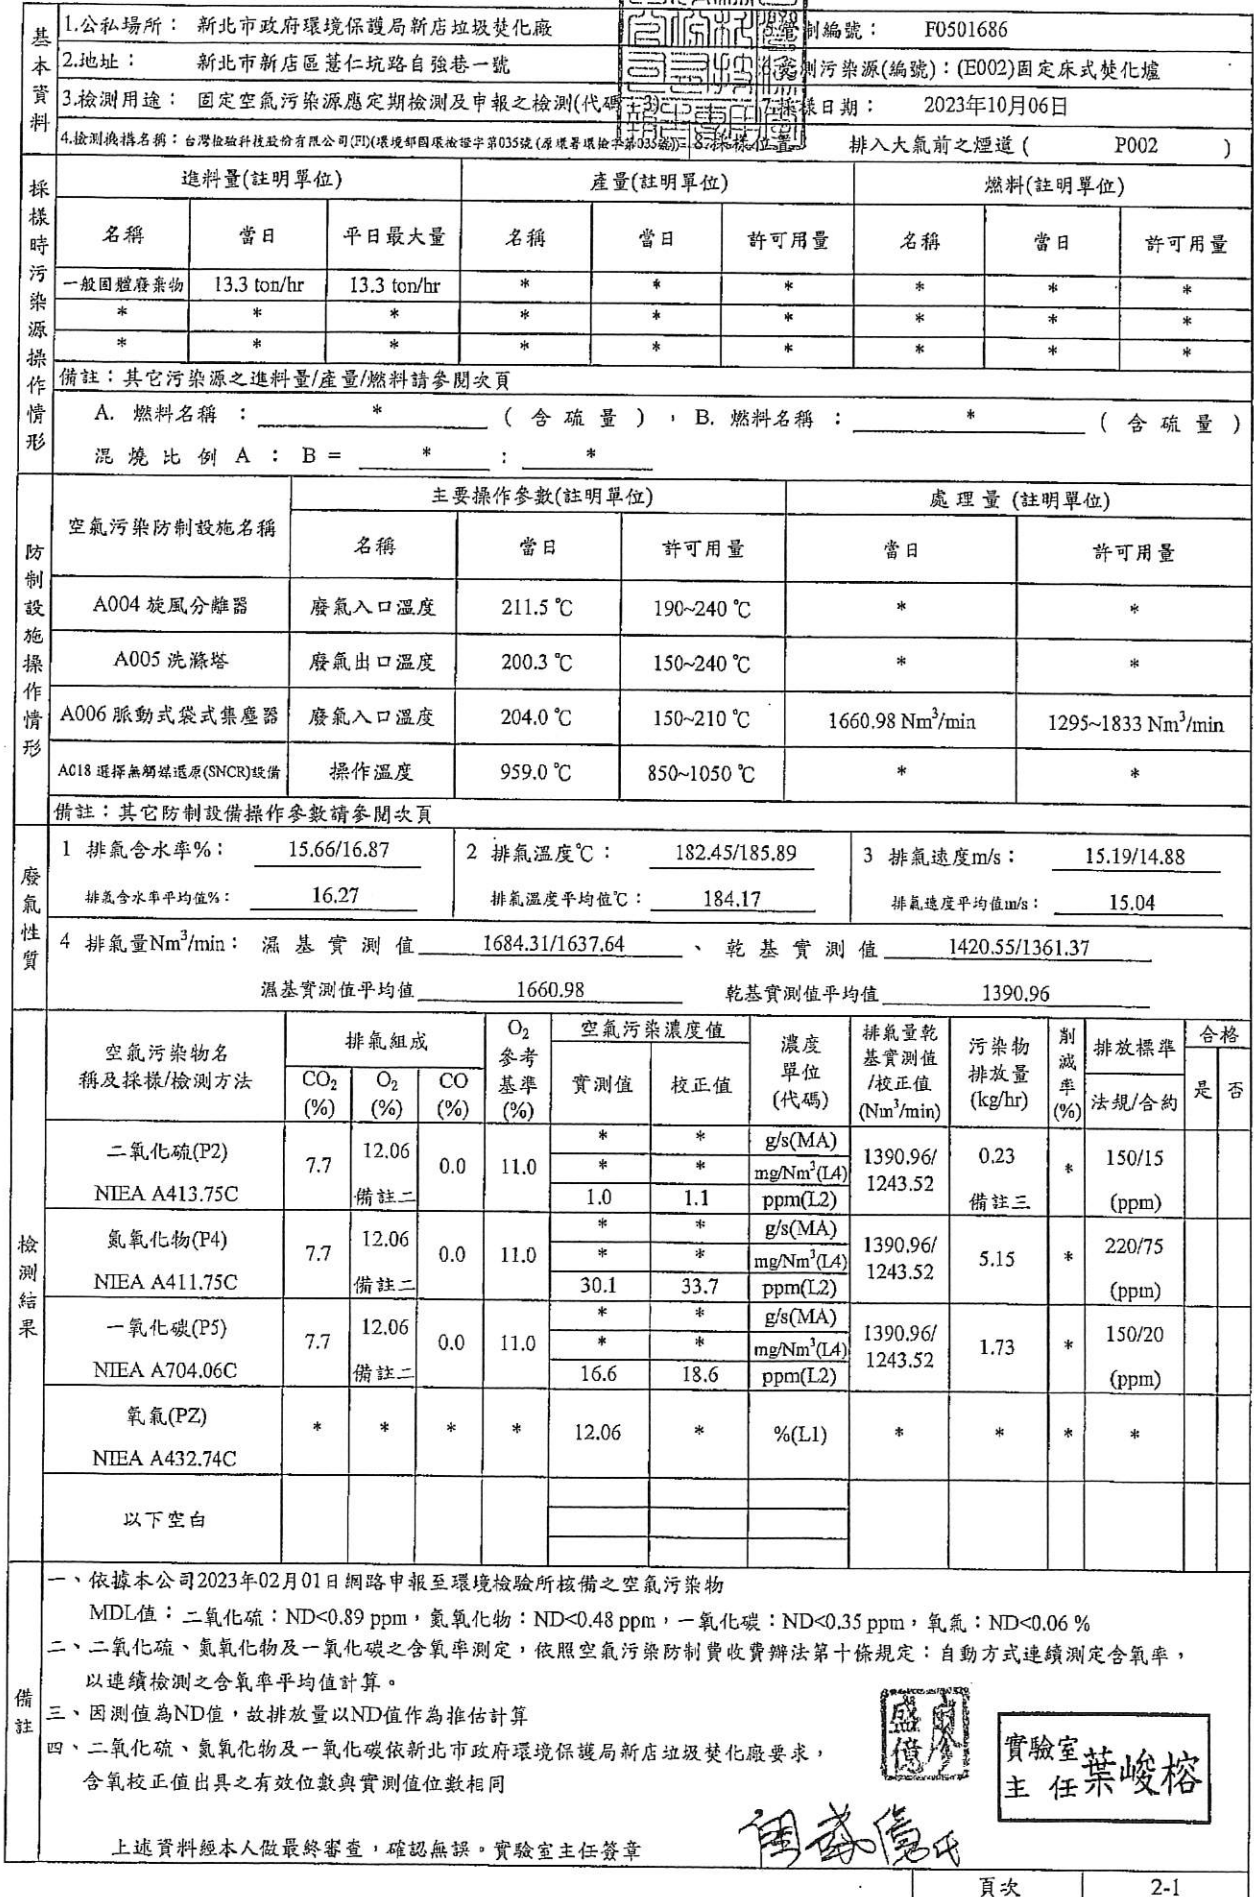 基本資料
1.公私場所： 新北市政府環境保護局新店垃圾焚化廠 制編號： F0501686
2.地址： 新北市新店區薏仁坑路自強巷一號 測污染源(編號)：(E002)固定床式焚化爐
3.檢測用途： 固定空氣污染源應定期檢測及申報之檢測(代碼 7.採樣日期： 2023年10月06日
4.檢測機構名稱：台灣檢驗科技股份有限公司(FI)(環境部國環檢證字第035號(原環署環檢字第035號)) 8.採樣位置： 排入大氣前之煙道 ( P002 )
採樣時污染源操作情形
進料量(註明單位) 產量(註明單位) 燃料(註明單位)
名稱 當日 平日最大量 名稱 當日 許可用量 名稱 當日 許可用量
一般固體廢棄物 13.3 ton/hr 13.3 ton/hr * * * * * *
* * * * * * * * *
* * * * * * * * *
備註：其它污染源之進料量/產量/燃料請參閱次頁
A. 燃料名稱 ： * ( 含硫量 ) ，B. 燃料名稱 ： * ( 含硫量 )
混燒比例 A ： B = * ： *
防制設施操作情形
空氣污染防制設施名稱 主要操作參數(註明單位) 處理量 (註明單位)
名稱 當日 許可用量 當日 許可用量
A004 旋風分離器 廢氣入口溫度 211.5 ℃ 190~240 ℃ * *
A005 洗滌塔 廢氣出口溫度 200.3 ℃ 150~240 ℃ * *
A006 脈動式袋式集塵器 廢氣入口溫度 204.0 ℃ 150~210 ℃ 1660.98 Nm³/min 1295~1833 Nm³/min
A018 選擇無觸媒還原(SNCR)設備 操作溫度 959.0 ℃ 850~1050 ℃ * *
備註：其它防制設備操作參數請參閱次頁
廢氣性質
1 排氣含水率%： 15.66/16.87 2 排氣溫度℃： 182.45/185.89 3 排氣速度m/s： 15.19/14.88
排氣含水率平均值%： 16.27 排氣溫度平均值℃： 184.17 排氣速度平均值m/s： 15.04
4 排氣量Nm³/min： 濕基實測值 1684.31/1637.64 、 乾基實測值 1420.55/1361.37
濕基實測值平均值 1660.98 乾基實測值平均值 1390.96
檢測結果
空氣污染物名稱及採樣/檢測方法 排氣組成 O₂參考基準(%) 空氣污染濃度值 濃度單位(代碼) 排氣量乾基實測值/校正值(Nm³/min) 污染物排放量(kg/hr) 削減率(%) 排放標準 合格
CO₂(%) O₂(%) CO(%) 實測值 校正值 法規/合約 是 否
二氧化硫(P2) NIEA A413.75C 7.7 12.06 備註二 0.0 11.0 * * g/s(MA) 1390.96/1243.52 0.23 備註三 * 150/15 (ppm)
* * mg/Nm³(L4)
1.0 1.1 ppm(L2)
氮氧化物(P4) NIEA A411.75C 7.7 12.06 備註二 0.0 11.0 * * g/s(MA) 1390.96/1243.52 5.15 * 220/75 (ppm)
* * mg/Nm³(L4)
30.1 33.7 ppm(L2)
一氧化碳(P5) NIEA A704.06C 7.7 12.06 備註二 0.0 11.0 * * g/s(MA) 1390.96/1243.52 1.73 * 150/20 (ppm)
* * mg/Nm³(L4)
16.6 18.6 ppm(L2)
氧氣(PZ) NIEA A432.74C * * * * 12.06 * %(L1) * * * *
以下空白
備註
一、依據本公司2023年02月01日網路申報至環境檢驗所核備之空氣污染物
MDL值：二氧化硫：ND<0.89 ppm，氮氧化物：ND<0.48 ppm，一氧化碳：ND<0.35 ppm，氧氣：ND<0.06 %
二、二氧化硫、氮氧化物及一氧化碳之含氧率測定，依照空氣污染防制費收費辦法第十條規定：自動方式連續測定含氧率，
以連續檢測之含氧率平均值計算。
三、因測值為ND值，故排放量以ND值作為推估計算
四、二氧化硫、氮氧化物及一氧化碳依新北市政府環境保護局新店垃圾焚化廠要求，
含氧校正值出具之有效位數與實測值位數相同
實驗室主任 葉峻榕
上述資料經本人做最終審查，確認無誤。實驗室主任簽章
頁次 2-1